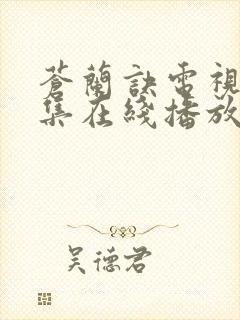 蒼蘭訣電視
集在綫播放
吴德君